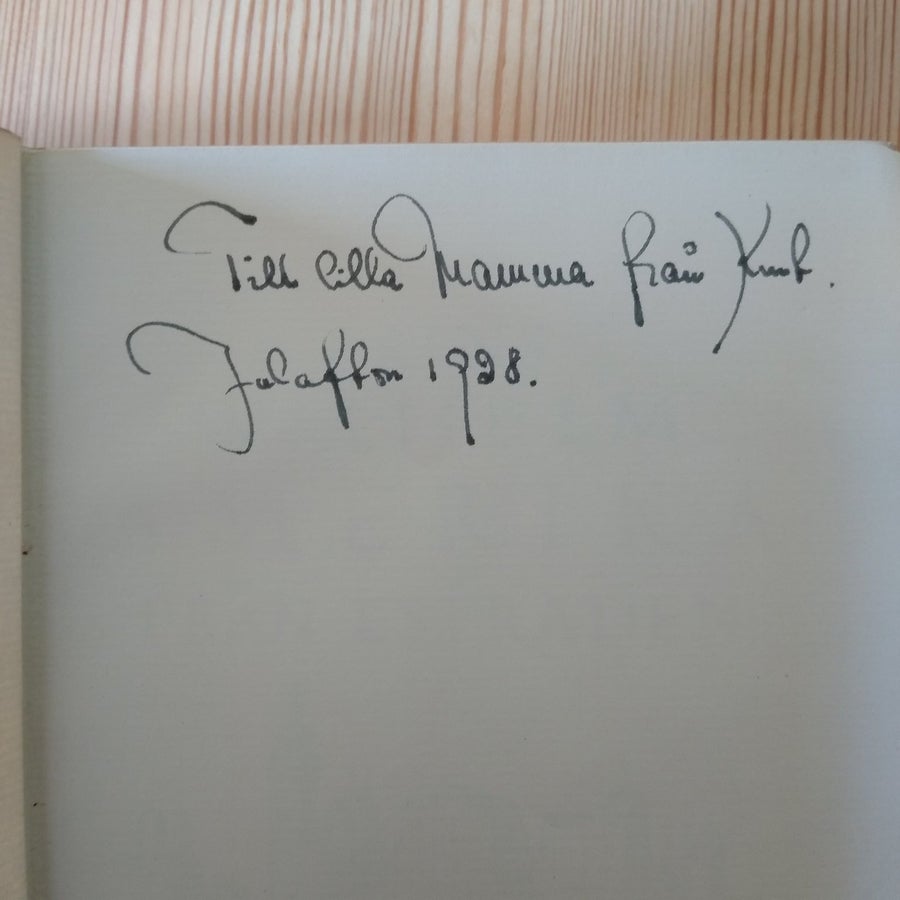 Till lilla Mamma från Knut.
Julafton 1928.